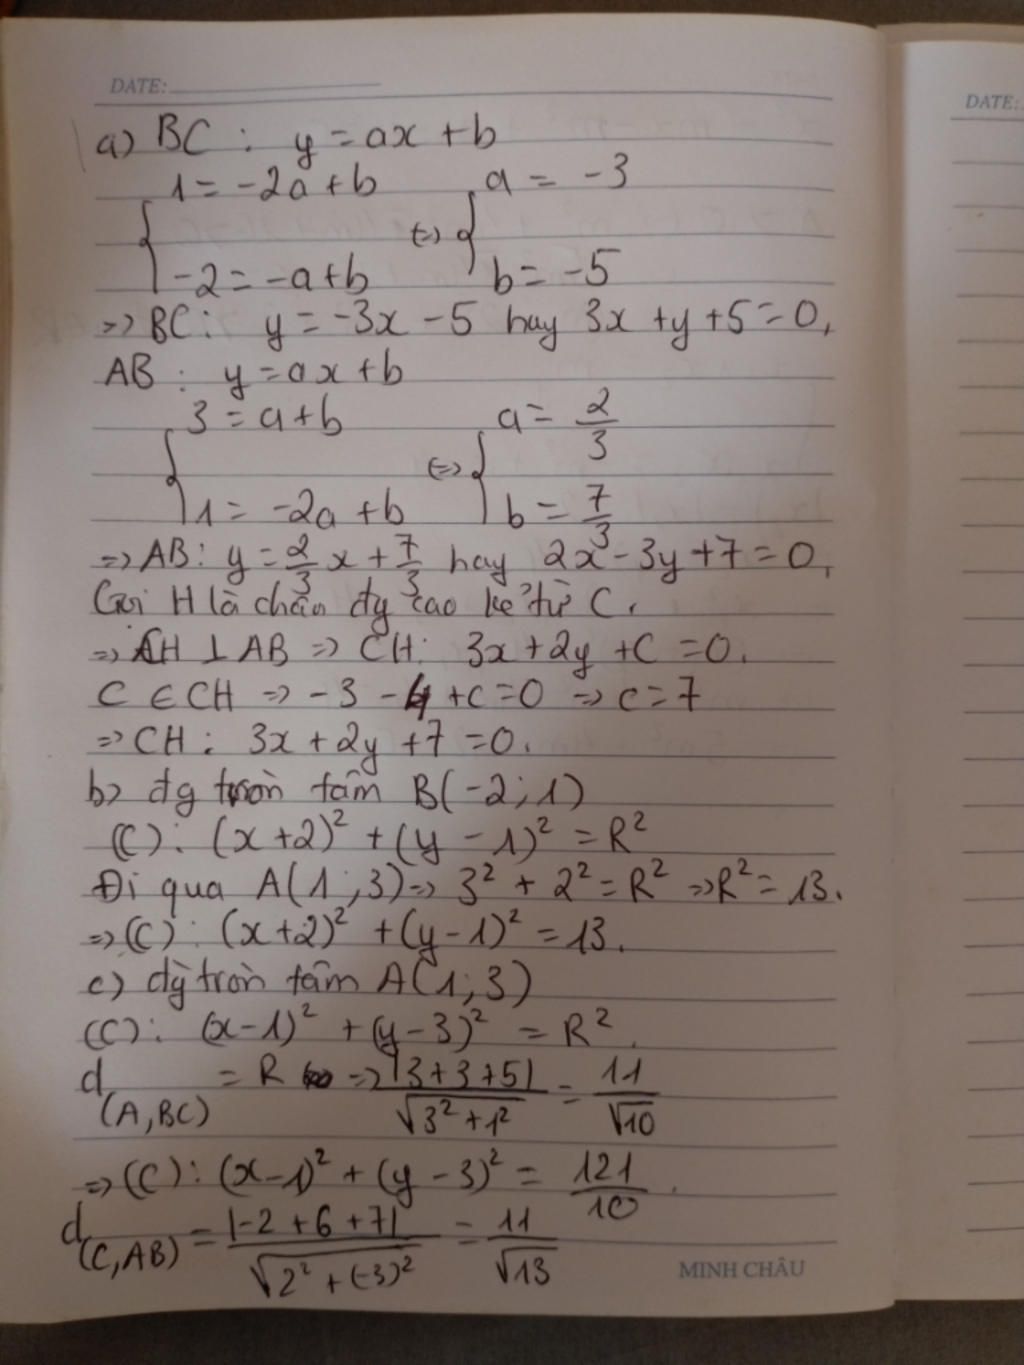 DATE:
DATE:
a) BC : y = ax + b
{ 1 = -2a + b
-2 = -a + b
<=> { a = -3
b = -5
=> BC: y = -3x - 5 hay 3x + y + 5 = 0,
AB : y = ax + b
{ 3 = a + b
1 = -2a + b
<=> { a = 2/3
b = 7/3
=> AB: y = 2/3 x + 7/3 hay 2x - 3y + 7 = 0,
Gọi H là chân đg cao kẻ từ C.
=> CH ⊥ AB => CH: 3x + 2y + C = 0.
C ∈ CH => -3 - 4 + c = 0 => c = 7
=> CH : 3x + 2y + 7 = 0.
b) đg tròn tâm B(-2; 1)
(C): (x + 2)² + (y - 1)² = R²
Đi qua A(1; 3) => 3² + 2² = R² => R² = 13.
=> (C) : (x + 2)² + (y - 1)² = 13.
c) đg tròn tâm A(1; 3)
(C): (x - 1)² + (y - 3)² = R².
d(A, BC) = R => |3 + 3 + 5| / √(3² + 1²) = 11/√10
=> (C) : (x - 1)² + (y - 3)² = 121/10.
d(C, AB) = |-2 + 6 + 7| / √(2² + (-3)²) = 11/√13
MINH CHÂU